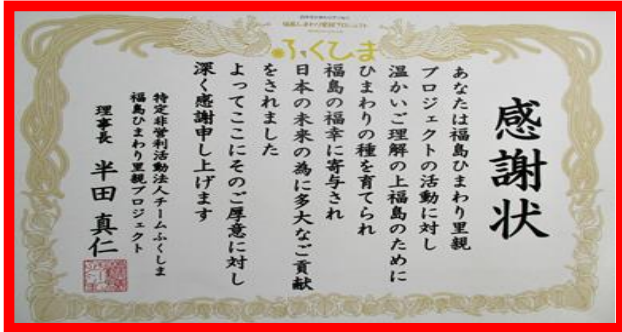 ふくしま
感謝状
あなたは福島ひまわり里親
プロジェクトの活動に対し
温かいご理解の上福島のために
ひまわりの種を育てられ
福島の福幸に寄与され
日本の未来の為に多大なご貢献
をされました
よってここにそのご厚意に対し
深く感謝申し上げます
特定非営利活動法人チームふくしま
福島ひまわり里親プロジェクト
理事長 半田真仁